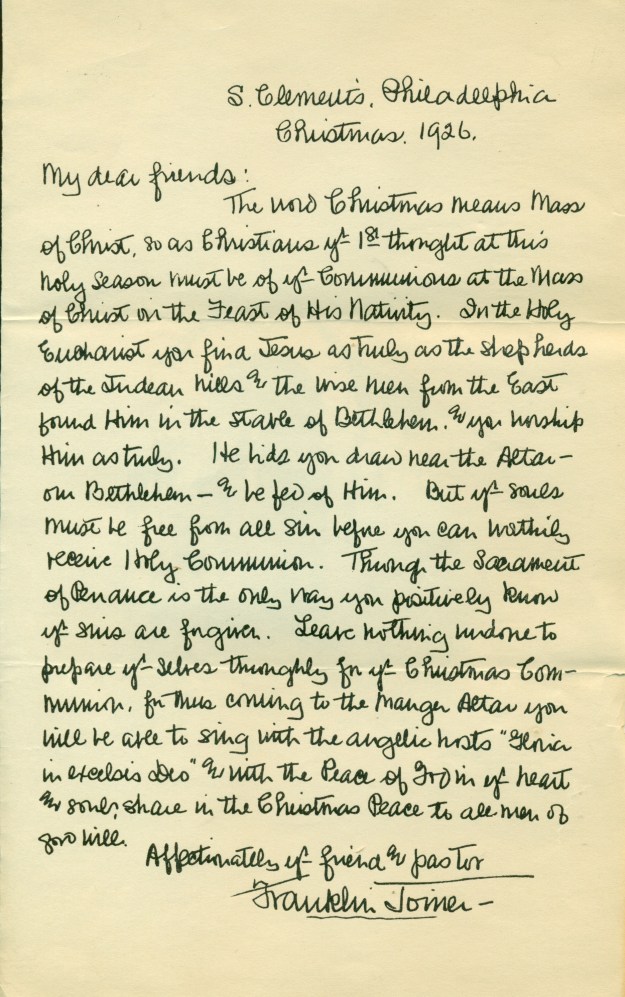 S. Clement's, Philadelphia
Christmas. 1926.
My dear friends:
The word Christmas means Mass
of Christ, so as Christians yr 1st thought at this
holy season must be of yr Communions at the Mass
of Christ on the Feast of His Nativity. In the Holy
Eucharist you find Jesus as truly as the shepherds
of the Judean hills & the wise men from the East
found Him in the stable of Bethlehem. & you worship
Him as truly. He bids you draw near the Altar –
our Bethlehem – & be fed of Him. But yr souls
must be free from all sin before you can worthily
receive Holy Communion. Through the Sacrament
of Penance is the only way you positively know
yr sins are forgiven. Leave nothing undone to
prepare yr selves thoroughly for yr Christmas Com–
munion, for thus coming to the Manger Altar you
will be able to sing with the angelic hosts "Gloria
in excelsis Deo" & with the Peace of God in yr heart
& souls, share in the Christmas Peace to all men of
good will.
Affectionately yr friend & pastor
Franklin Joiner –